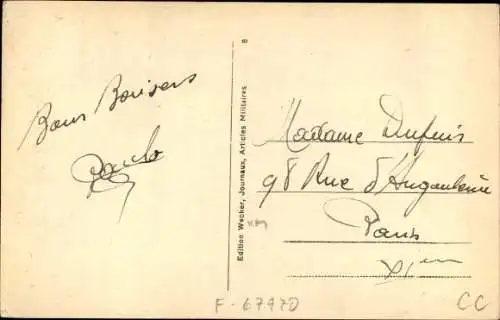 Bons Baisers
Paulo
Edition Wecker, Journaux, Articles Militaires
8
Madame Dupuis
98 Rue d'Angoulême
Paris
XIème
F-67470
CC